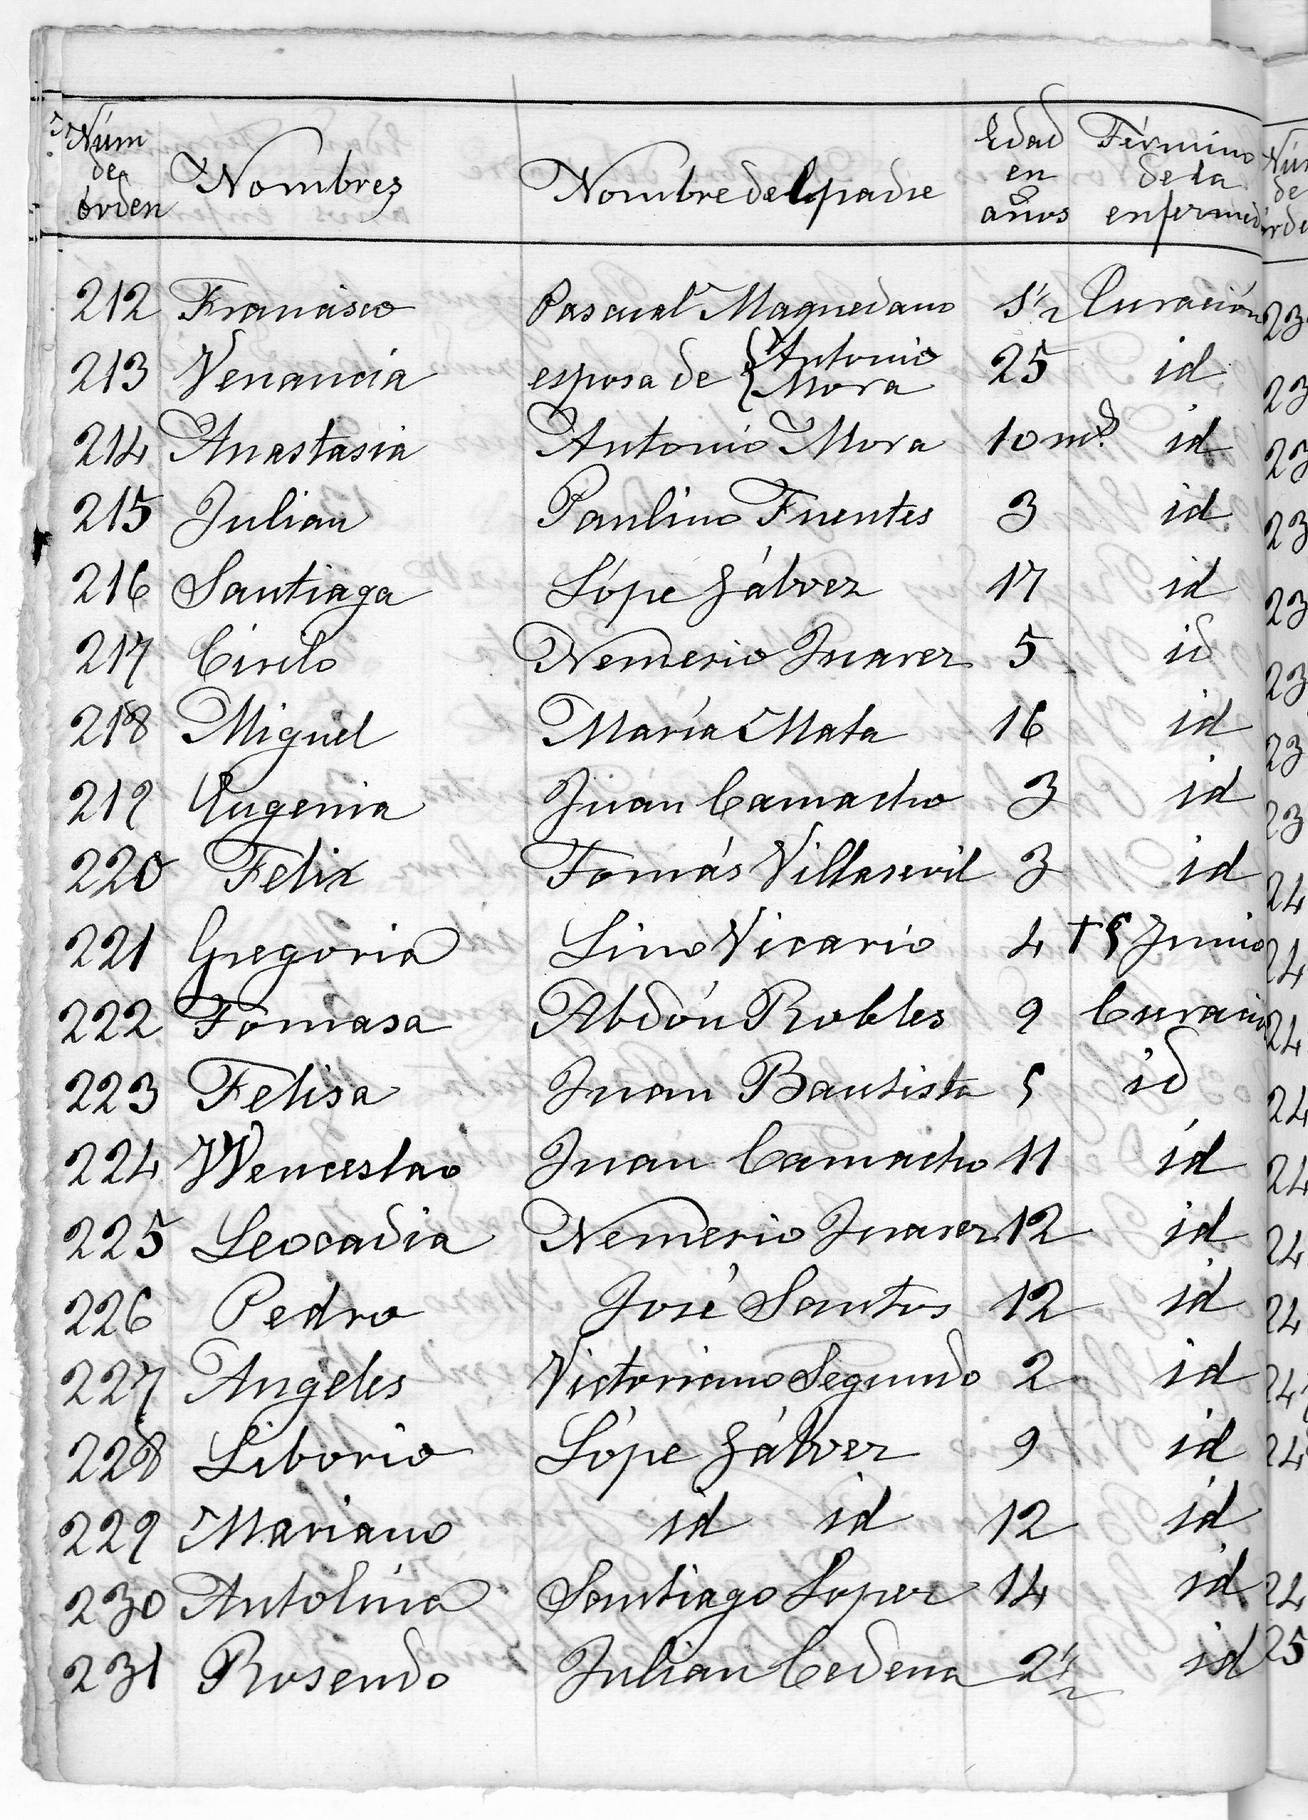 Núm de orden Nombres Nombre del padre Edad en años Término de la enfermed
212 Francisco Pascual Maquedano 1½ Curación
213 Venancia esposa de { Antonio Mora 25 id
214 Anastasia Antonio Mora 10 ms id
215 Julian Paulino Fuentes 3 id
216 Santiaga Lópe Gálvez 17 id
217 Cirilo Nemerio Juarez 5 id
218 Miguel María Mata 16 id
219 Eugenia Juan Camacho 3 id
220 Felix Tomás Villasevil 3 id
221 Gregoria Lino Vicario 4 † 5 Junio
222 Tomasa Abdón Robles 9 Curación
223 Felisa Juan Bautista 5 id
224 Wenceslao Juan Camacho 11 id
225 Leocadia Nemerio Juarez 12 id
226 Pedro José Santos 12 id
227 Angeles Victoriano Segundo 2 id
228 Liborio Lópe Gálvez 9 id
229 Mariano id id 12 id
230 Antolina Santiago Lopez 14 id
231 Rosendo Julian Cedena 2½ id